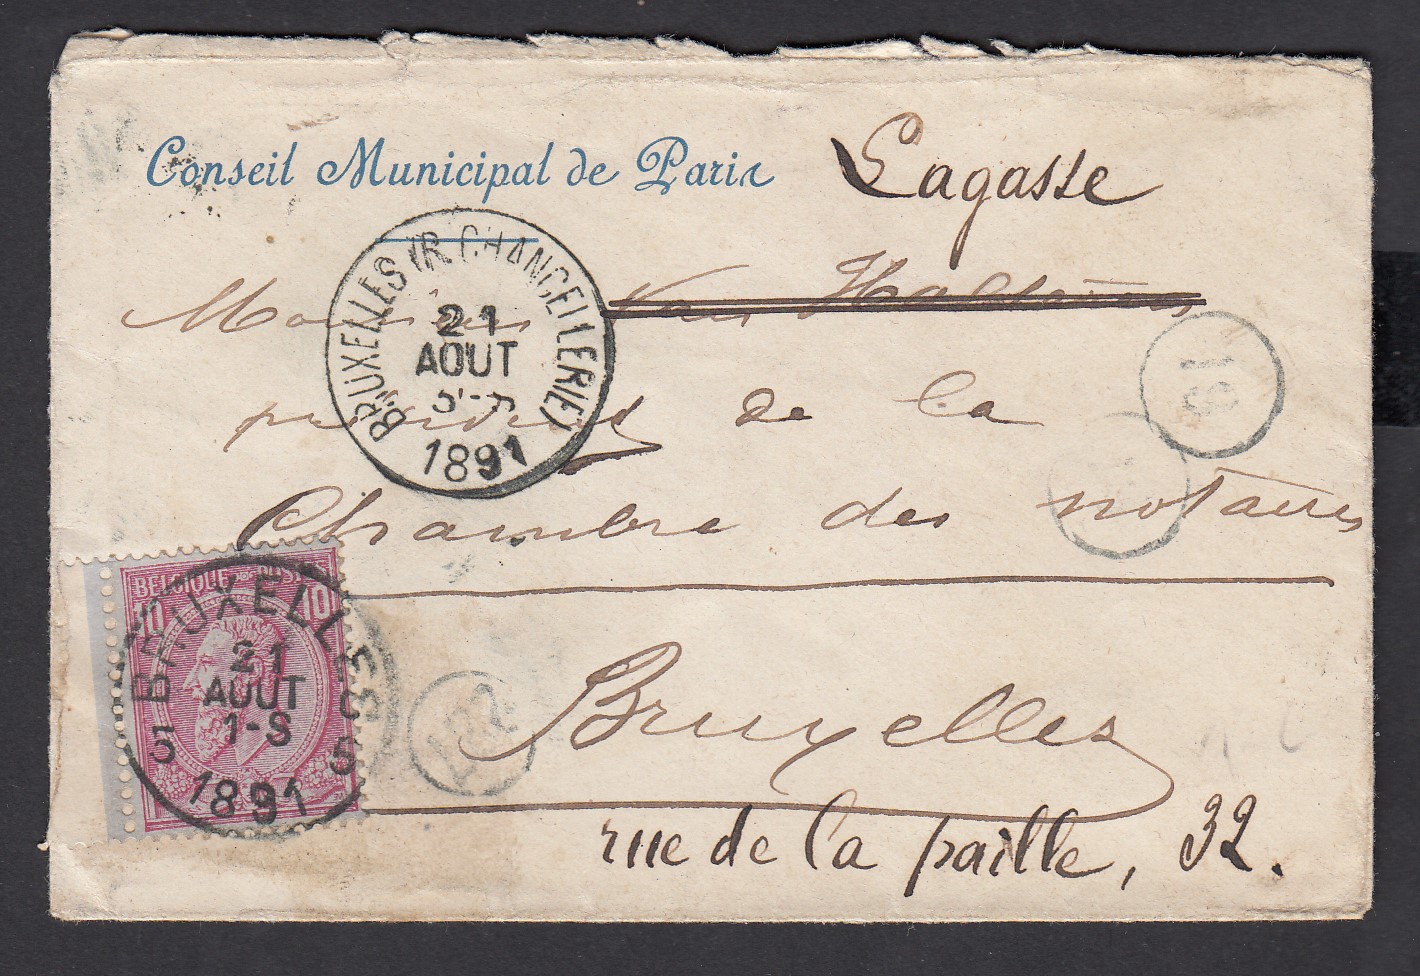 Conseil Municipal de Paris
Lagasse
Monsieur Van Halteren
président de la
Chambre des notaires
Bruxelles
rue de la paille, 32.
BRUXELLES (R. CHANCELLERIE)
21
AOUT
1891
BELGIQUE POSTES
10 10
BRUXELLES
21
AOUT
1-S
5 5
1891
19